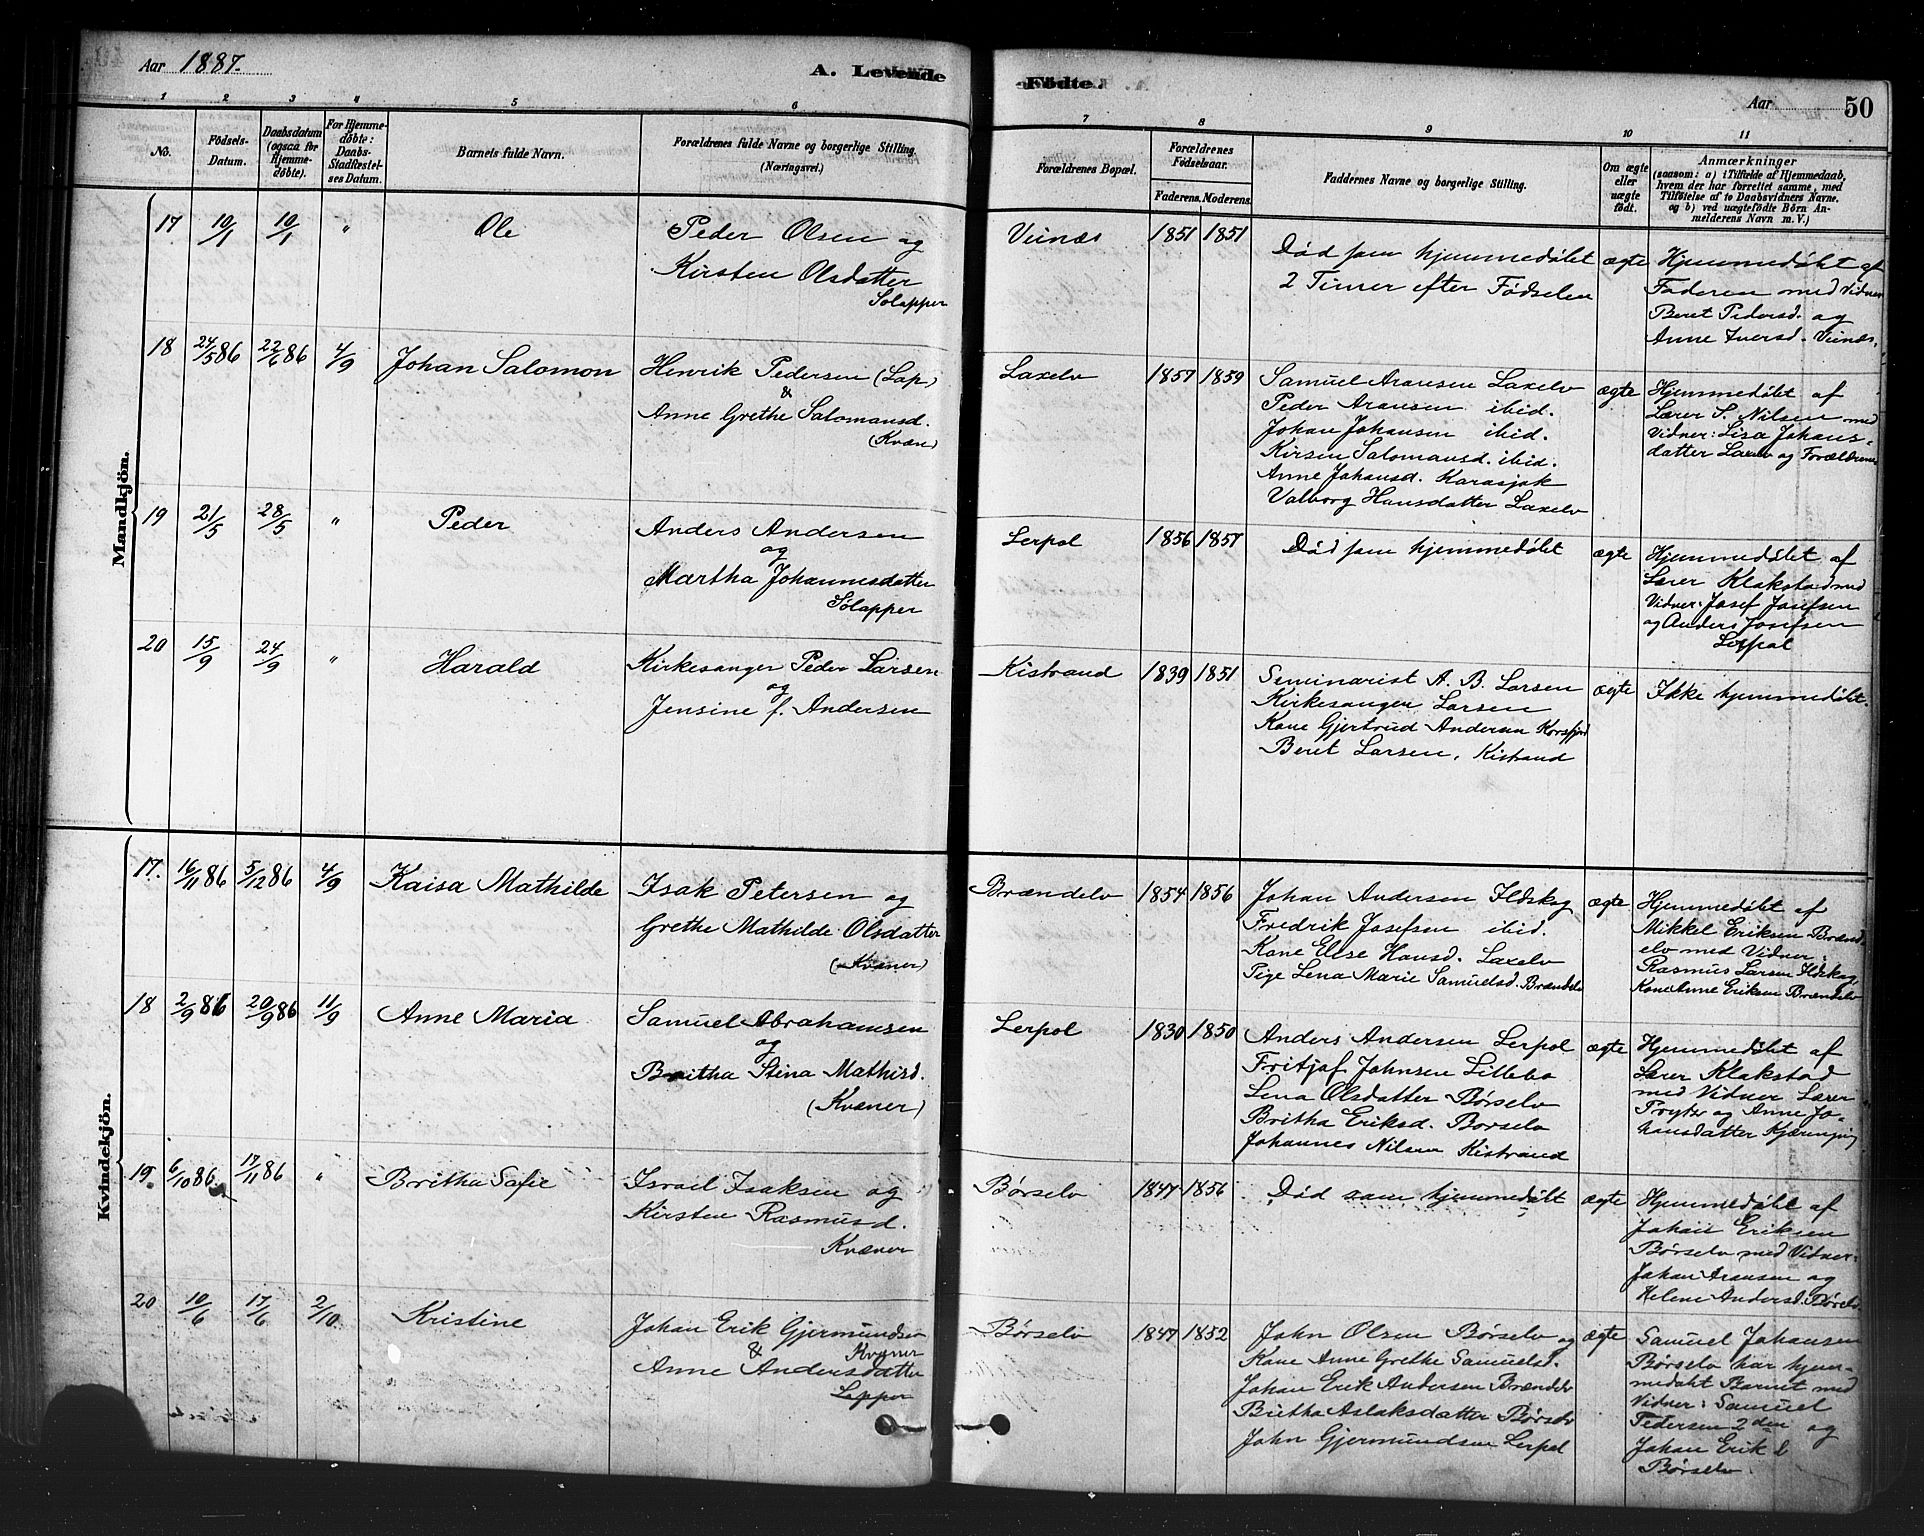 Aar 1887.
A. Levende Fødte.
Aar
50
1 2 3 4 5 6 7 8 9 10 11
No.
Fødsels-
Datum.
Daabsdatum
(ogsaa for
Hjemme-
døbte).
For Hjemme-
døbte:
Daabs-
Stadfæstel-
ses Datum.
Barnets fulde Navn.
Forældrenes fulde Navne og borgerlige Stilling.
(Næringsvei.)
Forældrenes Bopæl.
Forældrenes
Fødselsaar.
Faderens. Moderens.
Faddernes Navne og borgerlige Stilling.
Om ægte
eller
uægte
født.
Anmærkninger
(saasom: a) i Tilfælde af Hjemmedaab,
hvem der har forrettet samme, med
Tilføielse af to Daabsvidners Navne.
og b) ved uægtefødte Börn An-
melderens Navn m. V.)
Mandkjön.
17 10/1 10/1 " Ole
Peder Olsen og
Kirsten Olsdatter
Sölapper
Veinæs 1851 1851
Död som hjemmedøbt
2 Timer efter Fødselen
ægte
Hjemmedøbt af
Faderen med Vidner
Beret Pedersd. og
Anne Iversd. Veinæs.
18 24/5 86 22/6 86 4/9 Johan Salomon
Henrik Pedersen (Lap)
&
Anne Grethe Salomonsd.
(Kvæn)
Laxelv 1857 1859
Samuel Aronsen Laxelv
Peder Aronsen ibid.
Johan Johansen ibid.
Kirsen Salomonsd. ibid.
Anne Johansd. Karasjok
Valborg Hansdatter Laxelv
ægte
Hjemmedøbt af
Lærer S. Nilsen med
Vidner: Lisa Johans-
datter Laxelv og Forældrene
19 21/5 28/5 " Peder
Anders Andersen
og
Martha Johannesdatter
Sölapper
Lerpol 1856 1857
Död som hjemmedøbt
ægte
Hjemmedøbt af
Lærer Klakstad med
Vidner: Josef Josefsen
og Anders Josefsen
Lerpol
20 15/9 24/9 " Harald
Kirkesanger Peder Larsen
og
Jensine f. Andersen
Kistrand 1839 1851
Seminarist A. B. Larsen
Kirkesanger Larsen
Kone Gjertrud Andersen Korsfjord
Beret Larsen, Kistrand
ægte
Ikke hjemmedøbt.
Kvindekjön.
17. 16/11 86 5/12 86 4/9 Kaisa Mathilde
Isak Petersen og
Grethe Mathilde Olsdatter
(Kvæner)
Brændelv 1854 1856
Johan Andersen Ildskog
Fredrik Josefsen ibid.
Kone Else Hansd. Laxelv
Pige Lena Marie Samuelsd. Brændelv
ægte
Hjemmedøbt af
Mikkel Eriksen Brænd-
elv med Vidner:
Rasmus Larsen Ildskog,
Kone Anne Eriksen Brændelv
18 2/9 86 20/9 86 11/9 Anne Maria
Samuel Abrahamsen
og
Britha Stina Mathisd.
(Kvæner)
Lerpol 1830 1850
Anders Andersen Lerpol
Fritjof Johnsen Lillebo
Lena Olsdatter Børselv
Britha Eriksd. Børselv
Johannes Nilsen Kistrand
ægte
Hjemmedøbt af
Lærer Klakstad
med Vidner Lærer
Prytz og Anne Jo-
hansdatter Kjæringvig
19. 6/10 86 17/11 86 " Britha Sofie
Israel Isaksen og
Kirsten Rasmusd.
Kvæner
Børselv 1847 1856
Död som hjemmedøbt
ægte
Hjemmedøbt af
Johan Eriksen
Børselv med Vidner:
Johan Aronsen og
Helene Andersd. Børselv
20 10/6 17/6 2/10 Kristine
Johan Erik Gjermundsen
Kvæner
&
Anne Andersdatter
Lapper
Børselv 1847 1852
John Olsen Børselv og
Kone Anne Grethe Samuelsd.
Johan Erik Andersen Brændelv
Britha Aslaksdatter Børselv
John Gjermundsen Lerpol
ægte
Samuel Johansen
Børselv har hjem-
medøbt Barnet med
Vidner: Samuel
Pedersen 2den og
Johan Erik
Børselv.